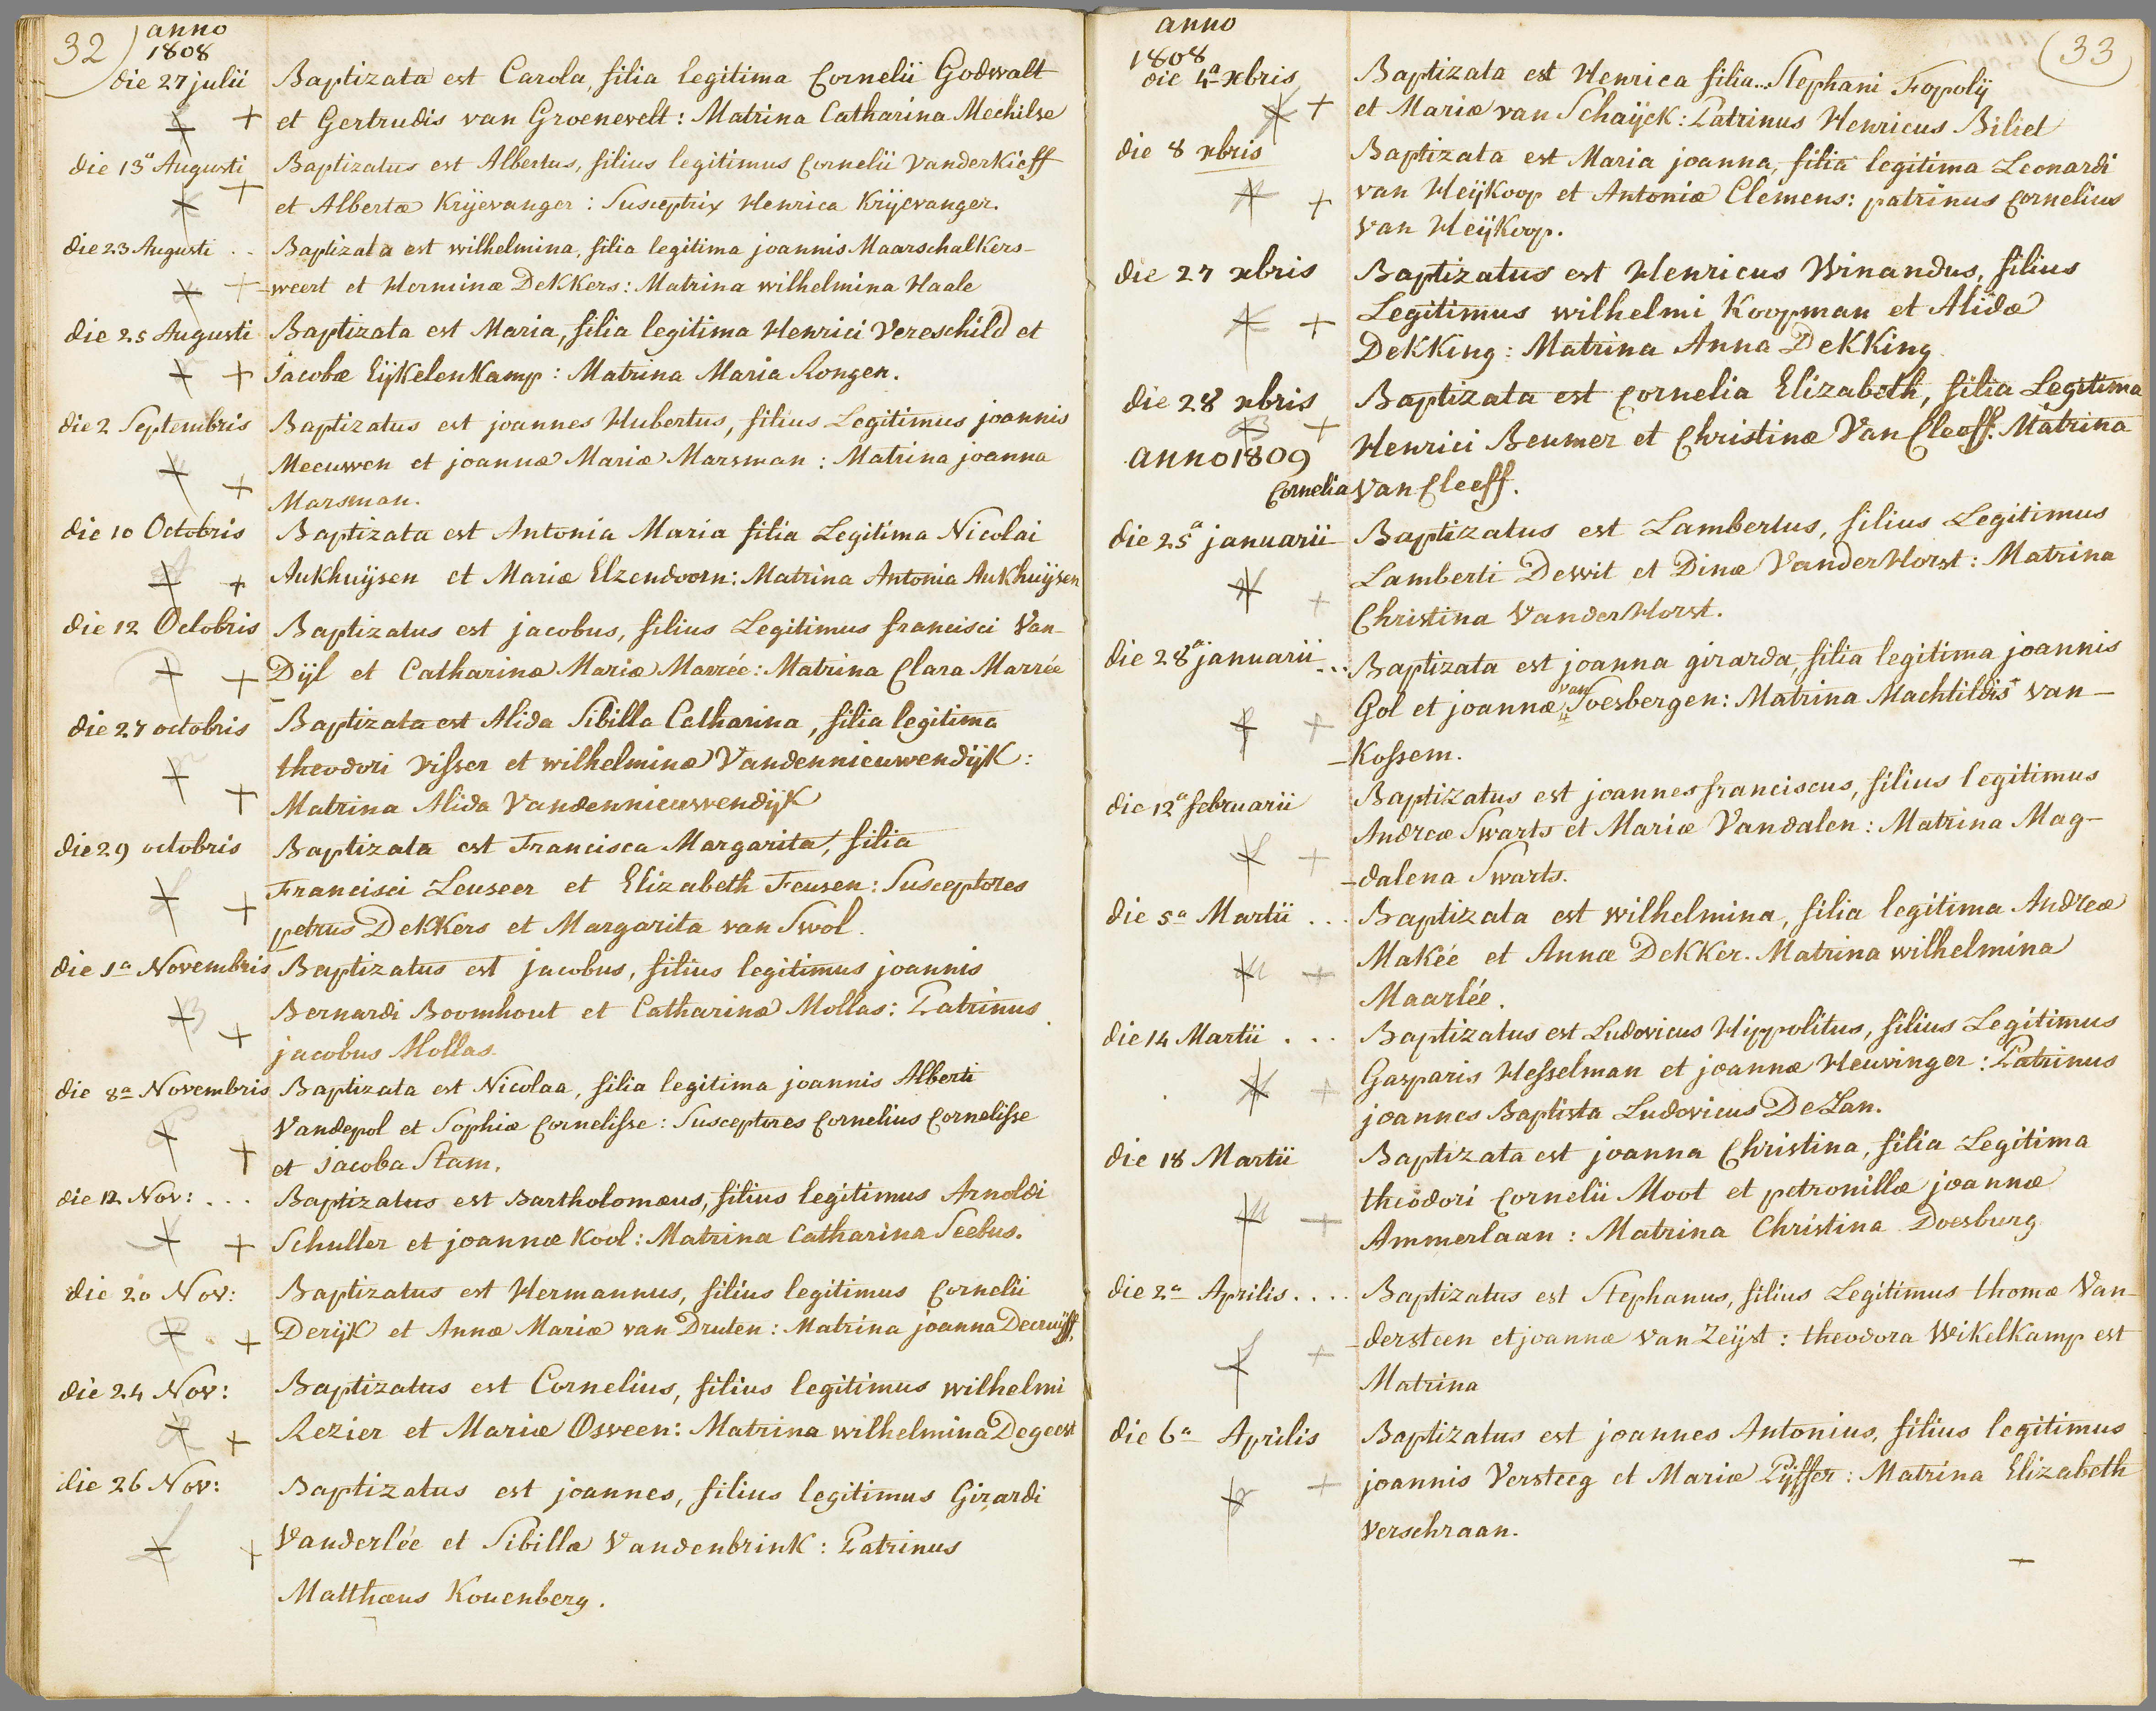 32) anno
1808
die 27 julii Baptizata est Carola, filia legitima Cornelii Godwalt
et Gertrudis van Groenevelt: Matrina Catharina Mechilse
die 13ª Augusti Baptizatus est Albertus, filius legitimus Cornelii VanderKieff
et Albertæ Krijevanger: Susceptrix Henrica Krijevanger.
die 23 Augusti .. Baptizata est wilhelmina, filia legitima joannis Maarschalkers-
-weert et Herminæ DeKKers: Matrina wilhelmina Haale
die 25 Augusti Baptizata est Maria, filia legitima Henrici Vereschild et
jacobæ EijKelenKamp: Matrina Maria Rongen.
die 2 Septembris Baptizatus est joannes Hubertus, filius Legitimus joannis
Meeuwen et joannæ Mariæ Marsman: Matrina joanna
Marsman.
die 10 Octobris Baptizata est Antonia Maria filia Legitima Nicolai
Aukhuijsen et Mariæ Elzendoorn: Matrina Antonia Aukhuijsen
die 12 Octobris Baptizatus est jacobus, filius Legitimus francisci Van-
Dijl et Catharinæ Mariæ Marrée: Matrina Clara Marrée
die 27 octobris Baptizata est Alida Sibilla Catharina, filia legitima
theodori Visser et wilhelminæ VandennieuwendijK:
Matrina Alida VandennieuwendijK
die 29 octobris Baptizata est Francisca Margarita, filia
Francisci Leuseer et Elizabeth Feusen: Susceptores
petrus DeKKers et Margarita van Swol.
die 1ª Novembris Baptizatus est jacobus, filius legitimus joannis
Bernardi Boomhout et Catharinæ Mollas: Patrinus
jacobus Mollas.
die 8ª Novembris Baptizata est Nicolaa, filia legitima joannis Alberti
Vandepol et Sophiæ Cornelisse: Susceptores Cornelius Cornelisse
et jacoba Stam.
die 12 Nov: ... Baptizatus est Bartholomæus, filius legitimus Arnoldi
Schuller et joannæ Kool: Matrina Catharina Seebus.
die 20 Nov: Baptizatus est Hermannus, filius legitimus Cornelii
DerijK et Annæ Mariæ van Druten: Matrina joanna Decruijff,
die 24 Nov: Baptizatus est Cornelius, filius legitimus wilhelmi
Rezier et Mariæ Osween: Matrina wilhelmina Degeest
die 26 Nov: Baptizatus est joannes, filius legitimus Girardi
Vanderlée et Sibillæ VandenbrinK: Patrinus
Matthæus Kouenberg.
anno (33
1808
die 4ª xbris Baptizata est Henrica filia... Stephani Fopolij
et Mariæ van Schaijck: Patrinus Henricus Biliet
die 8 xbris Baptizata est Maria joanna, filia legitima Leonardi
van HeijKoop et Antoniæ Clemens: patrinus Cornelius
van HeijKoop.
die 27 xbris Baptizatus est Henricus Winandus, filius
Legitimus wilhelmi Koopman et Alidæ
DeKKing: Matrina Anna DeKKing
die 28 xbris Baptizata est Cornelia Elizabeth, filia Legitima
Henrici Beumer et Christinæ Van Cleeff. Matrina
anno 1809
Cornelia Van Cleeff.
die 25ª januarii Baptizatus est Lambertus, filius Legitimus
Lamberti Dewit et Dinæ VanderHorst: Matrina
Christina VanderHorst.
die 28ª januarii ... Baptizata est joanna girarda, filia legitima joannis
Gol et joannæ van Soesbergen: Matrina Machtildis van-
-Kossem.
die 12ª februarii Baptizatus est joannes franciscus, filius legitimus
Andreæ Swarts et Mariæ Vandalen: Matrina Mag-
-dalena Swarts.
die 5ª Martii ... Baptizata est wilhelmina, filia legitima Andreæ
Makée et Annæ DeKKer. Matrina wilhelmina
Maarlée.
die 14 Martii ... Baptizatus est Ludovicus Hippolitus, filius Legitimus
Gasparis Hesselman et joannæ Heuvinger: Patrinus
joannes Baptista Ludovicus DeLan.
die 18 Martii Baptizata est joanna Christina, filia Legitima
theodori Cornelii Moot et petronillæ joannæ
Ammerlaan: Matrina Christina Doesburg
die 2ª Aprilis .... Baptizatus est Stephanus, filius Legitimus thomæ Van-
-dersteen et joannæ van Zeijst: theodora WikelKamp est
Matrina
die 6ª Aprilis Baptizatus est joannes Antonius, filius legitimus
joannis Versteeg et Mariæ Pijffer: Matrina Elizabeth
Verschraan.